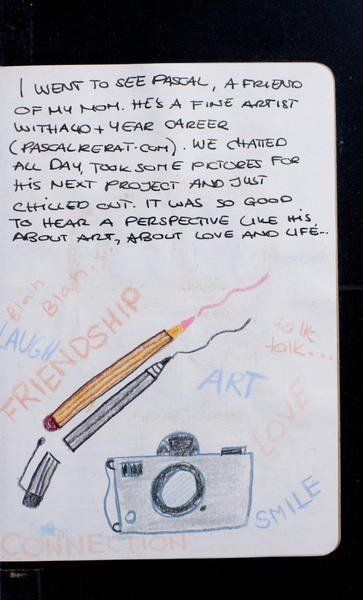 I WENT TO SEE PASCAL, A FRIEND
OF MY MOM. HE'S A FINE ARTIST
WITH A 40+ YEAR CAREER
(PASCALKERAT.COM). WE CHATTED
ALL DAY, TOOK SOME PICTURES FOR
HIS NEXT PROJECT AND JUST
CHILLED OUT. IT WAS SO GOOD
TO HEAR A PERSPECTIVE LIKE HIS
ABOUT ART, ABOUT LOVE AND LIFE...
Blah
Blah...
LAUGH
FRIENDSHIP
talk
talk...
ART
LOVE
SMILE
CONNECTION